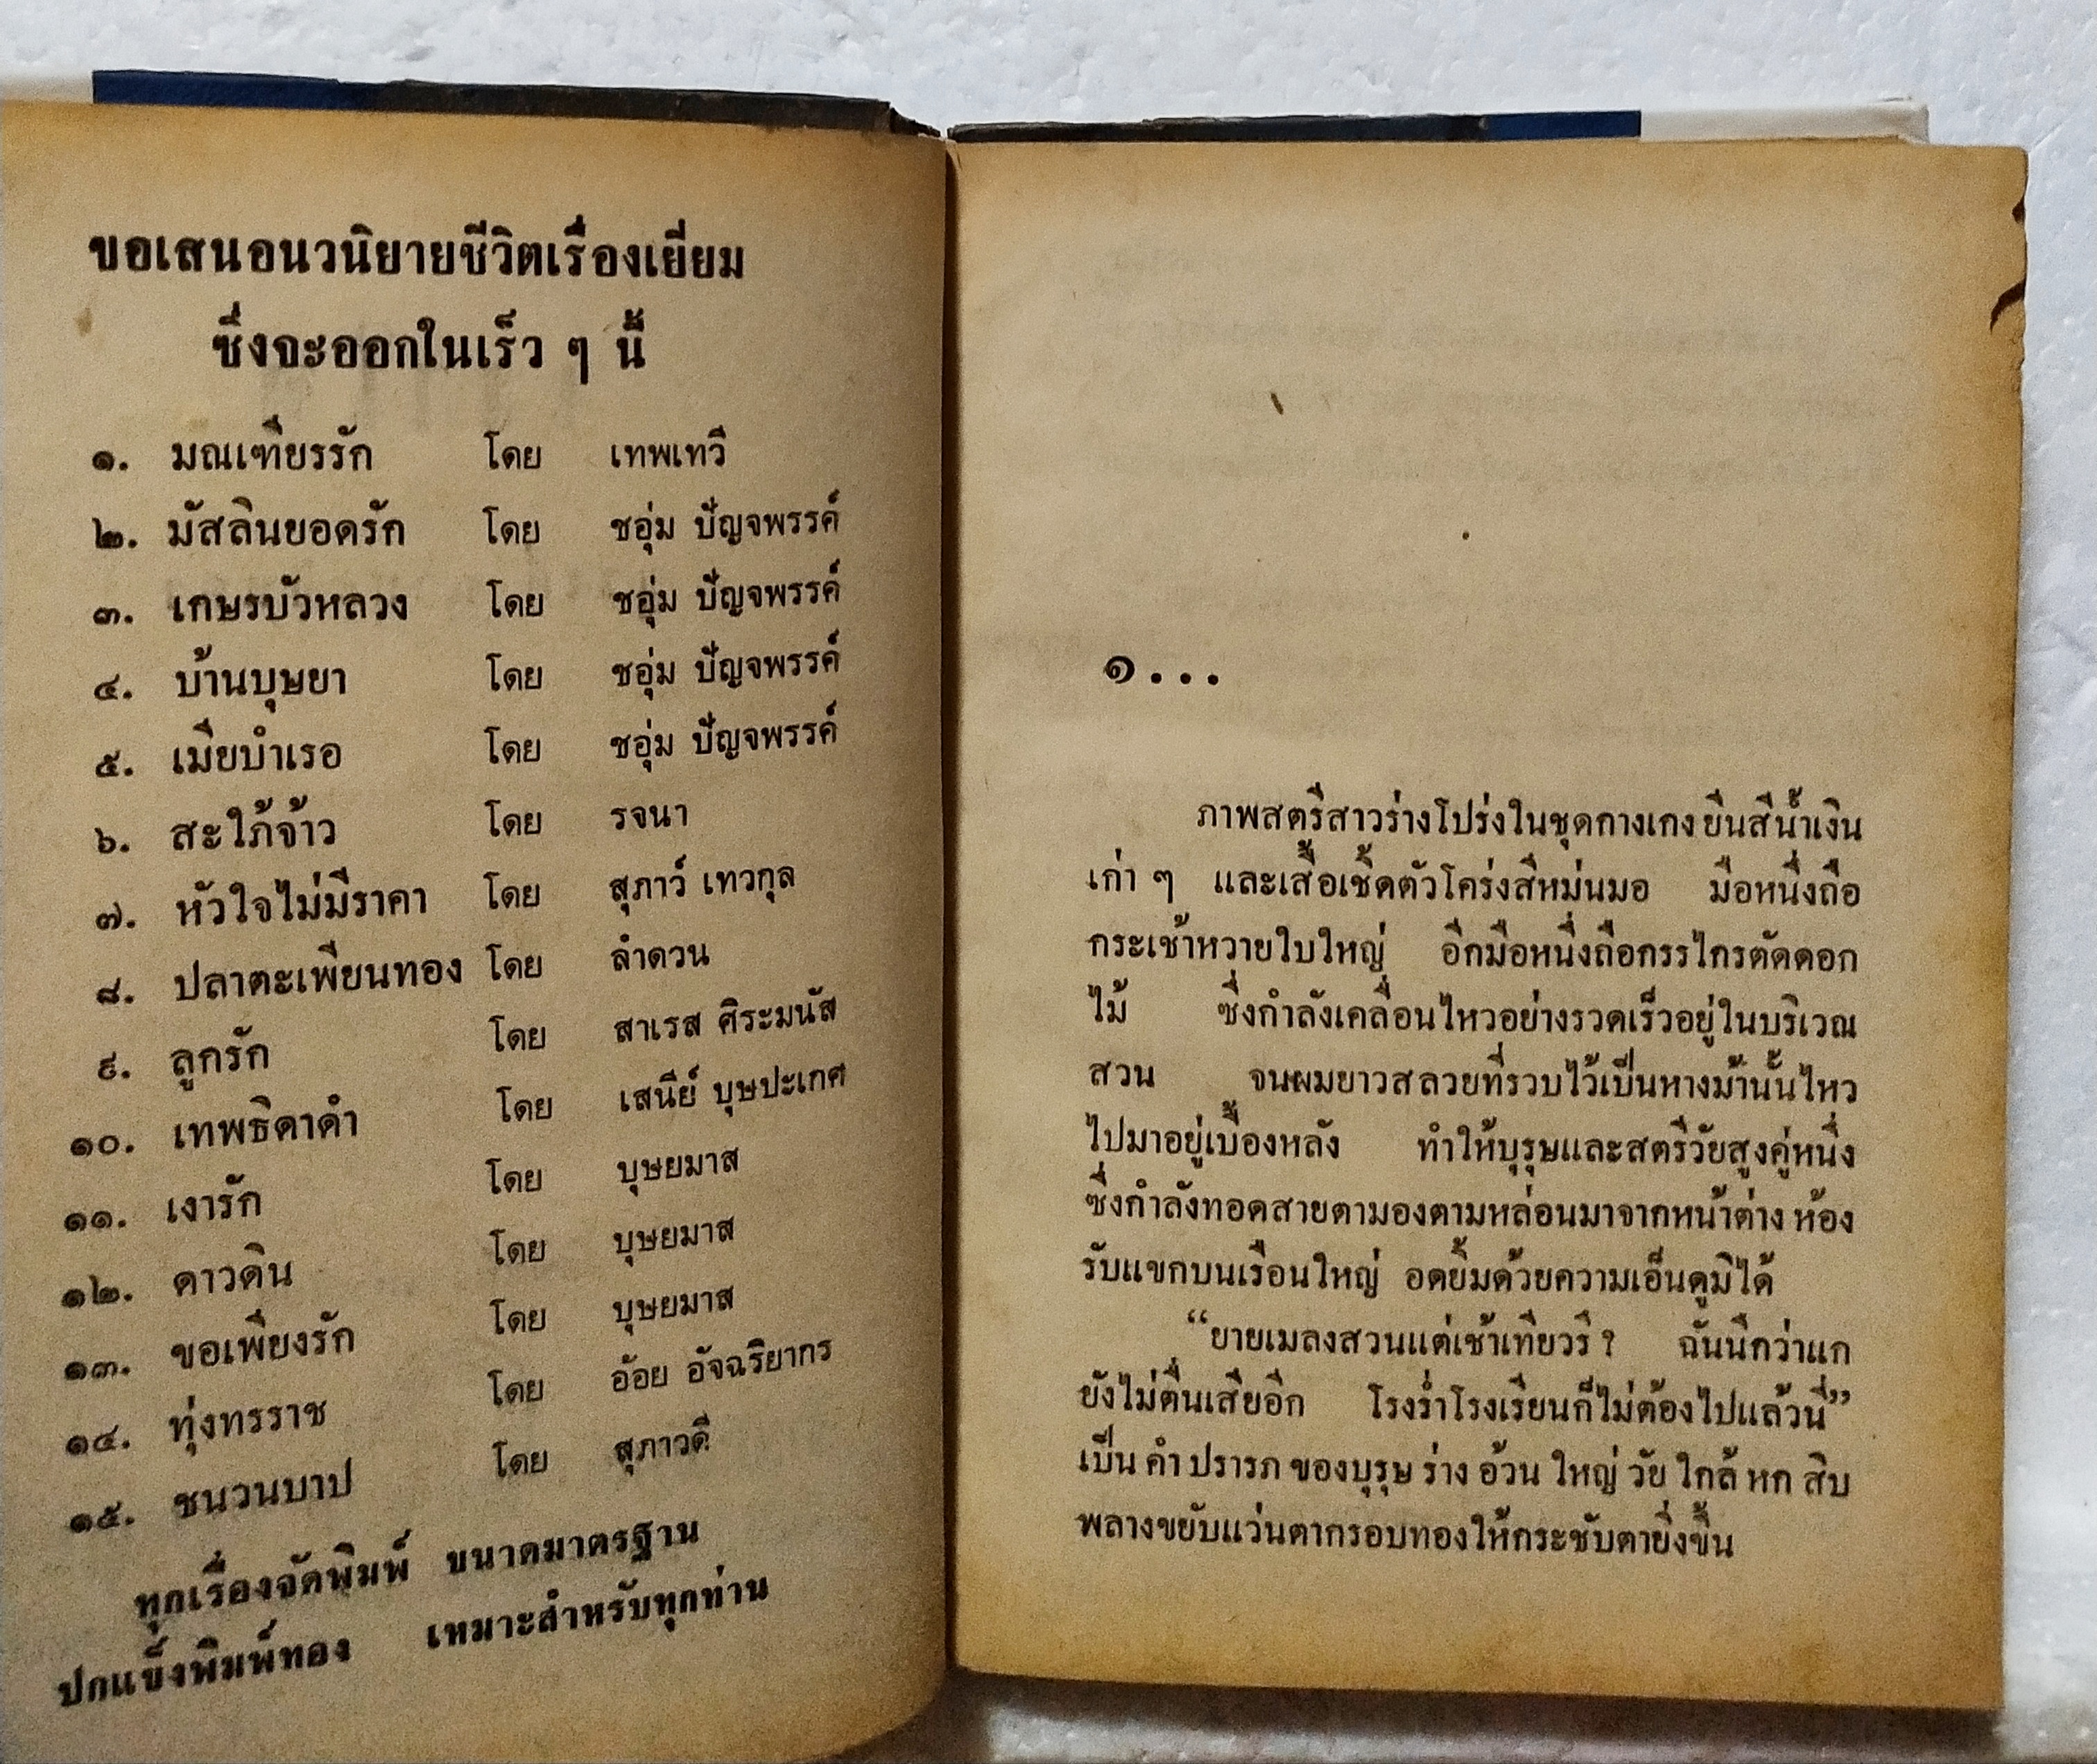 ขอเสนอนวนิยายชีวิตเรื่องเยี่ยม
ซึ่งจะออกในเร็ว ๆ นี้
๑. มณเฑียรรัก โดย เทพเทวี
๒. มัสลินยอดรัก โดย ชอุ่ม ปัญจพรรค์
๓. เกษรบัวหลวง โดย ชอุ่ม ปัญจพรรค์
๔. บ้านบุษยา โดย ชอุ่ม ปัญจพรรค์
๕. เมียบำเรอ โดย ชอุ่ม ปัญจพรรค์
๖. สะใภ้จ้าว โดย รจนา
๗. หัวใจไม่มีราคา โดย สุภาว์ เทวกุล
๘. ปลาตะเพียนทอง โดย ลำดวน
๙. ลูกรัก โดย สาเรส ศิระมนัส
๑๐. เทพธิดาดำ โดย เสนีย์ บุษปะเกศ
๑๑. เงารัก โดย บุษยมาส
๑๒. ดาวดิน โดย บุษยมาส
๑๓. ขอเพียงรัก โดย บุษยมาส
๑๔. ทุ่งทรราช โดย อ้อย อัจฉริยากร
๑๕. ชนวนบาป โดย สุภาวดี
ทุกเรื่องจัดพิมพ์ ขนาดมาตรฐาน
ปกแข็งพิมพ์ทอง เหมาะสำหรับทุกท่าน
๑...
ภาพสตรีสาวร่างโปร่งในชุดกางเกงยีนสีน้ำเงิน
เก่า ๆ และเสื้อเชิ้ตตัวโคร่งสีหม่นมอ มือหนึ่งถือ
กระเช้าหวายใบใหญ่ อีกมือหนึ่งถือกรรไกรตัดดอก
ไม้ ซึ่งกำลังเคลื่อนไหวอย่างรวดเร็วอยู่ในบริเวณ
สวน จนผมยาวสลวยที่รวบไว้เป็นหางม้านั้นไหว
ไปมาอยู่เบื้องหลัง ทำให้บุรุษและสตรีวัยสูงคู่หนึ่ง
ซึ่งกำลังทอดสายตามองตามหล่อนมาจากหน้าต่าง ห้อง
รับแขกบนเรือนใหญ่ อดยิ้มด้วยความเอ็นดูมิได้
“ยายเมลงสวนแต่เช้าเทียวรึ ? ฉันนึกว่าแก
ยังไม่ตื่นเสียอีก โรงร่ำโรงเรียนก็ไม่ต้องไปแล้วนี่”
เป็น คำ ปรารภ ของบุรุษ ร่าง อ้วน ใหญ่ วัย ใกล้ หก สิบ
พลางขยับแว่นตากรอบทองให้กระชับตายิ่งขึ้น